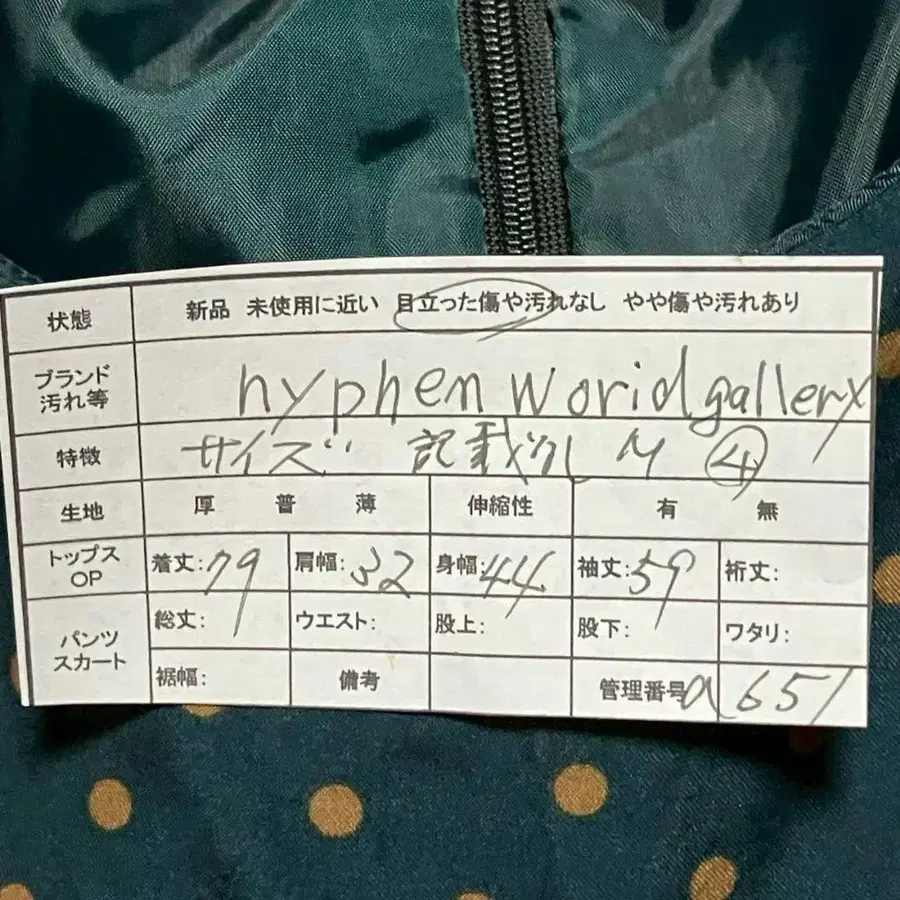 状態 新品 未使用に近い 目立った傷や汚れなし やや傷や汚れあり
ブランド
汚れ等 hyphen world gallery
特徴 サイズ 記載なし M ④
生地 厚 普 薄 伸縮性 有 無
トップス
OP 着丈:79 肩幅:32 身幅:44 袖丈:59 裄丈:
パンツ
スカート 総丈: ウエスト: 股上: 股下: ワタリ:
裾幅: 備考 管理番号 a651